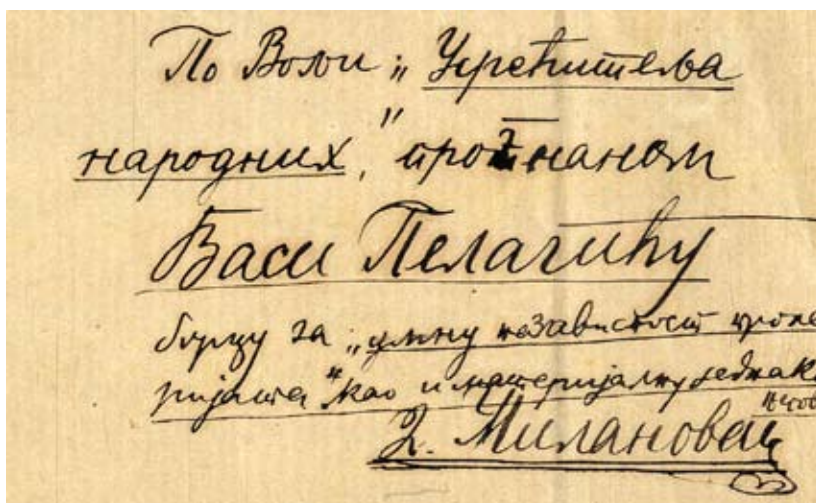 По Вољи „Усрећитеља
народних,“ прогнаном
Васи Пелагићу
борцу за „умну независност проле
ријата“ као и материјалну једнак
човј
Г. Милановац